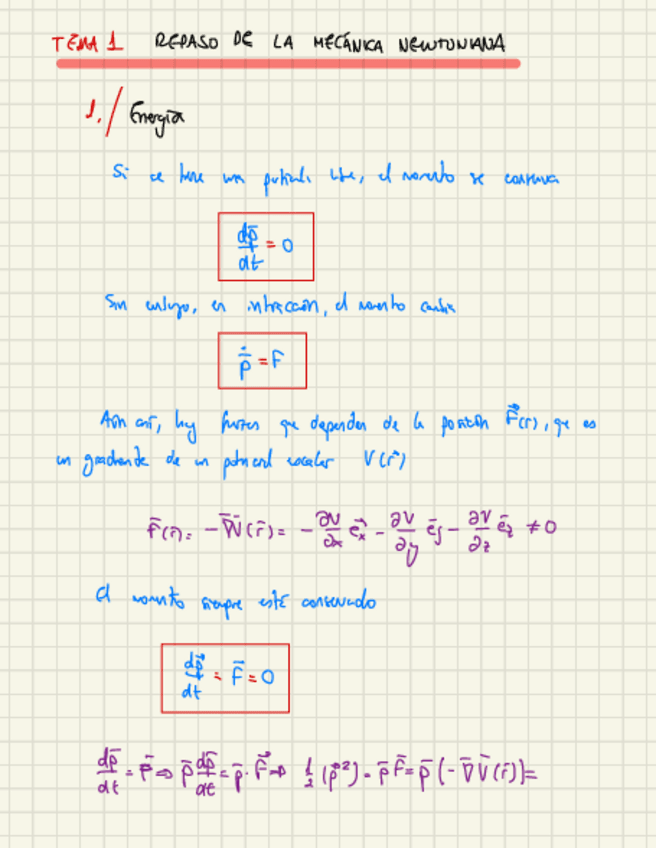 TEMA 1 REPASO DE LA MECÁNICA NEWTONIANA
1./ Energía
Si se tiene una partícula libre, el momento se conserva
dp̄/dt = 0
Sin embargo, en interacción, el momento cambia
ṗ = F
Aún así, hay fuerzas que dependen de la posición F⃗(r), que es
un gradiente de un potencial escalar V(r⃗)
F̄(r̄) = -∇̄V(r̄) = - ∂V/∂x e⃗x - ∂V/∂y ēy - ∂V/∂z ēz ≠ 0
El momento siempre está conservado
dp⃗/dt = F̄ = 0
dp̄/dt = F̄ ⇒ p̄ dp̄/dt = p̄ · F⃗ ⇒ 1/2 (p⃗²) = p̄ F̄ = p̄ (-∇̄V̄(r̄)) =